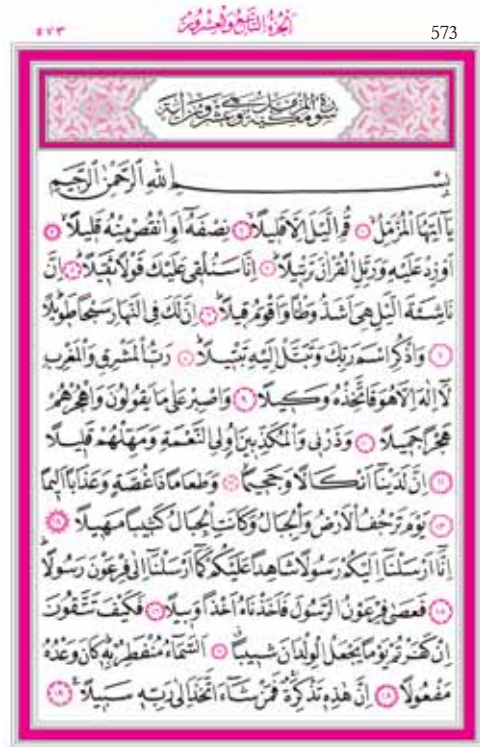 ٥٧٣ الجزء التاسع والعشرون 573
سورة المزمل مكية وهى عشرون آية
بِسْمِ اللّٰهِ الرَّحْمٰنِ الرَّحِيمِ
يَٓا اَيُّهَا الْمُزَّمِّلُۙ ١ قُمِ الَّيْلَ اِلَّا قَل۪يلًاۙ ٢ نِصْفَهُٓ اَوِ انْقُصْ مِنْهُ قَل۪يلًاۙ ٣
اَوْ زِدْ عَلَيْهِ وَرَتِّلِ الْقُرْاٰنَ تَرْت۪يلًاۜ ٤ اِنَّا سَنُلْق۪ي عَلَيْكَ قَوْلًا ثَق۪يلًا ٥ اِنَّ
نَاشِئَةَ الَّيْلِ هِيَ اَشَدُّ وَطْـًٔا وَاَقْوَمُ ق۪يلًاۜ ٦ اِنَّ لَكَ فِي النَّهَارِ سَبْحًا طَو۪يلًاۜ
٧ وَاذْكُرِ اسْمَ رَبِّكَ وَتَبَتَّلْ اِلَيْهِ تَبْت۪يلًاۜ ٨ رَبُّ الْمَشْرِقِ وَالْمَغْرِبِ
لَٓا اِلٰهَ اِلَّا هُوَ فَاتَّخِذْهُ وَك۪يلًا ٩ وَاصْبِرْ عَلٰى مَا يَقُولُونَ وَاهْجُرْهُمْ
هَجْرًا جَم۪يلًا ١٠ وَذَرْن۪ي وَالْمُكَذِّب۪ينَ اُو۬لِي النَّعْمَةِ وَمَهِّلْهُمْ قَل۪يلًا
١١ اِنَّ لَدَيْنَٓا اَنْكَالًا وَجَح۪يمًاۙ ١٢ وَطَعَامًا ذَا غُصَّةٍ وَعَذَابًا اَل۪يمًا
١٣ يَوْمَ تَرْجُفُ الْاَرْضُ وَالْجِبَالُ وَكَانَتِ الْجِبَالُ كَث۪يبًا مَه۪يلًا ١٤
اِنَّٓا اَرْسَلْنَٓا اِلَيْكُمْ رَسُولًا شَاهِدًا عَلَيْكُمْ كَمَٓا اَرْسَلْنَٓا اِلٰى فِرْعَوْنَ رَسُولًاۜ
١٥ فَعَصٰى فِرْعَوْنُ الرَّسُولَ فَاَخَذْنَاهُ اَخْذًا وَب۪يلًا ١٦ فَكَيْفَ تَتَّقُونَ
اِنْ كَفَرْتُمْ يَوْمًا يَجْعَلُ الْوِلْدَانَ ش۪يبًاۗ ١٧ اَلسَّمَٓاءُ مُنْفَطِرٌ بِه۪ۜ كَانَ وَعْدُهُ
مَفْعُولًا ١٨ اِنَّ هٰذِه۪ تَذْكِرَةٌۚ فَمَنْ شَٓاءَ اتَّخَذَ اِلٰى رَبِّه۪ سَب۪يلًا۟ ١٩